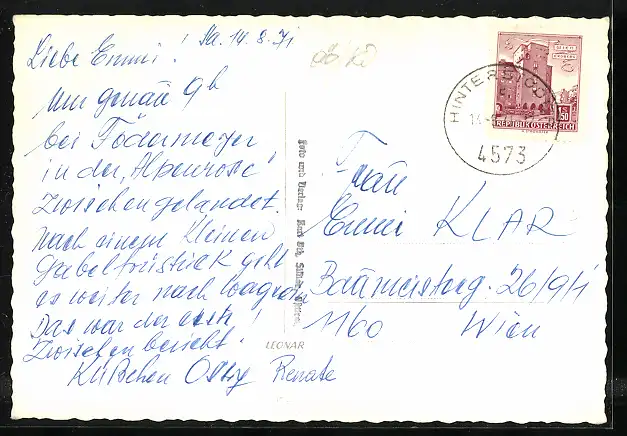 Liebe Emmi! Sa. 14.8.71
Um genau 9h
bei Födermayer
in der „Alpenrose"
zwischengelandet.
Nach einem kleinen
Gabelfrüstück geht
es weiter nach Wagrain
Das war der erste
Zwischenbericht!
Küßchen Renate
Frau
Emmi KLAR
Baumeisterg. 26/9/1
1160 Wien
HINTERSTODER
4573
WIEN
ERDBERG
S 1.50
REPUBLIK ÖSTERREICH
Foto und Verlag:
LEONAR